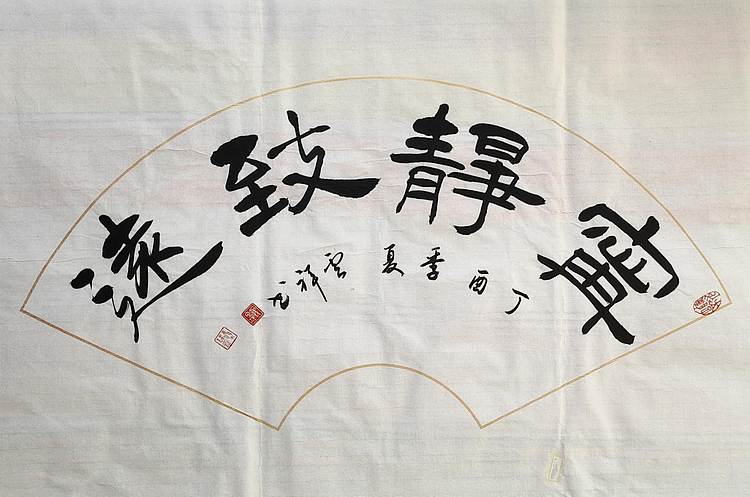 寧靜致遠
丁酉季夏雲祥书